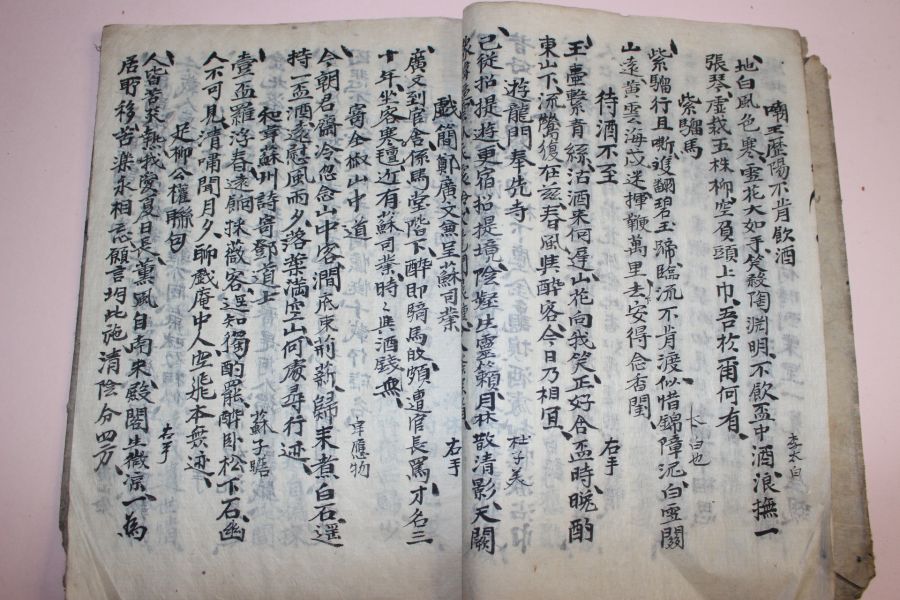 嘲王歷陽不肯飮酒 李太白
地白風色寒雪花大如手笑殺陶渊明不飮盃中酒浪撫一
張琴虛栽五株柳空負頭上巾吾於爾何有
紫騮馬
紫騮行且嘶雙翻碧玉蹄臨流不肯渡似惜錦障泥白雪關
山遠黃雲海戍迷揮鞭萬里去安得念香閨
待酒不至 右手
玉壺繫青絲沽酒来何遅山花向我笑正好含盃時晩酌
東山下流鶯復在玆春風與醉客今日乃相冝
遊龍門奉先寺 杜子美
已從招提遊更宿招提境陰壑生靈籟月林散清影天闕
戱簡鄭廣文兼呈蘇司業 右手
廣文到官舎係馬堂階下醉卽騎馬皈頗遭官長罵才名三
十年坐客寒氊近有蘇司業時時與酒錢無
寄全椒山中道 韋應物
今朝君齋冷忽念山中客澗底束荊薪歸来煮白石遥
持一盃酒遠慰風雨夕落葉滿空山何處尋行迹
和韋蘇州詩寄鄧道士 蘇子瞻
壹盃羅浮春遠餉採薇客遥知獨酌罷醉卧松下石幽
人不可見清嘯聞月夕聊戱庵中人空飛本無迹
足柳公權聯句 右手
人皆苦炎熱我愛夏日長薰風自南来殿閣生微凉一爲
居所移苦楽永相忘願言均此施清陰分四方